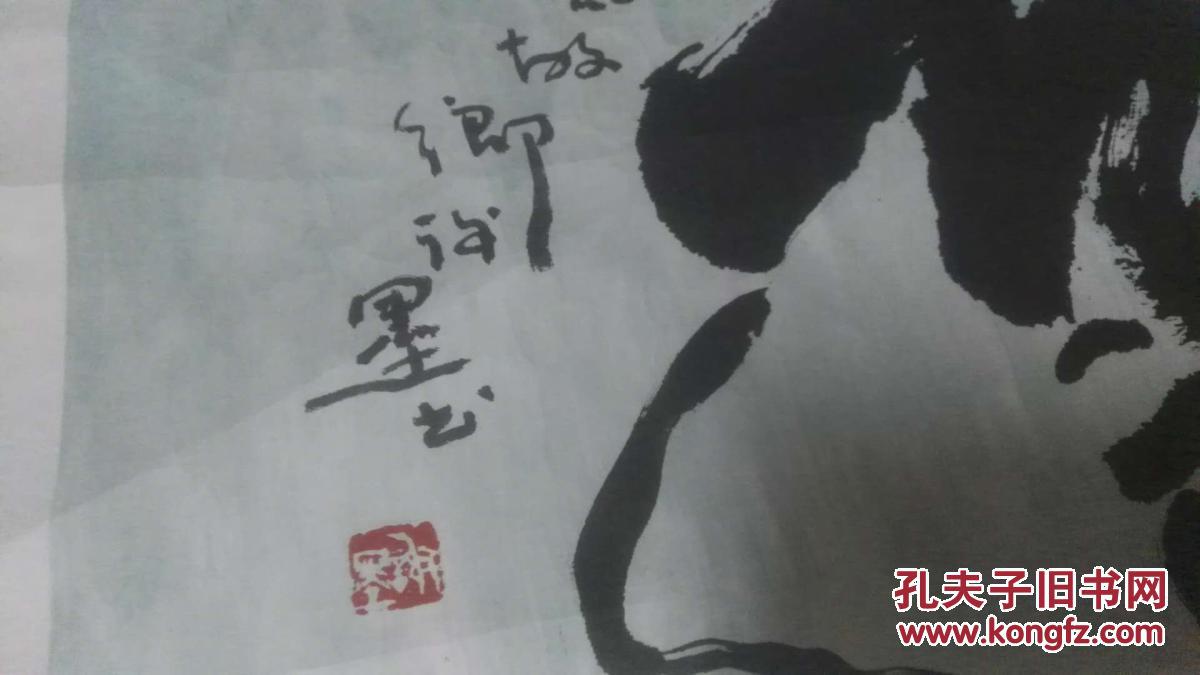 故
鄉
许
墨
书
孔夫子旧书网
www.kongfz.com